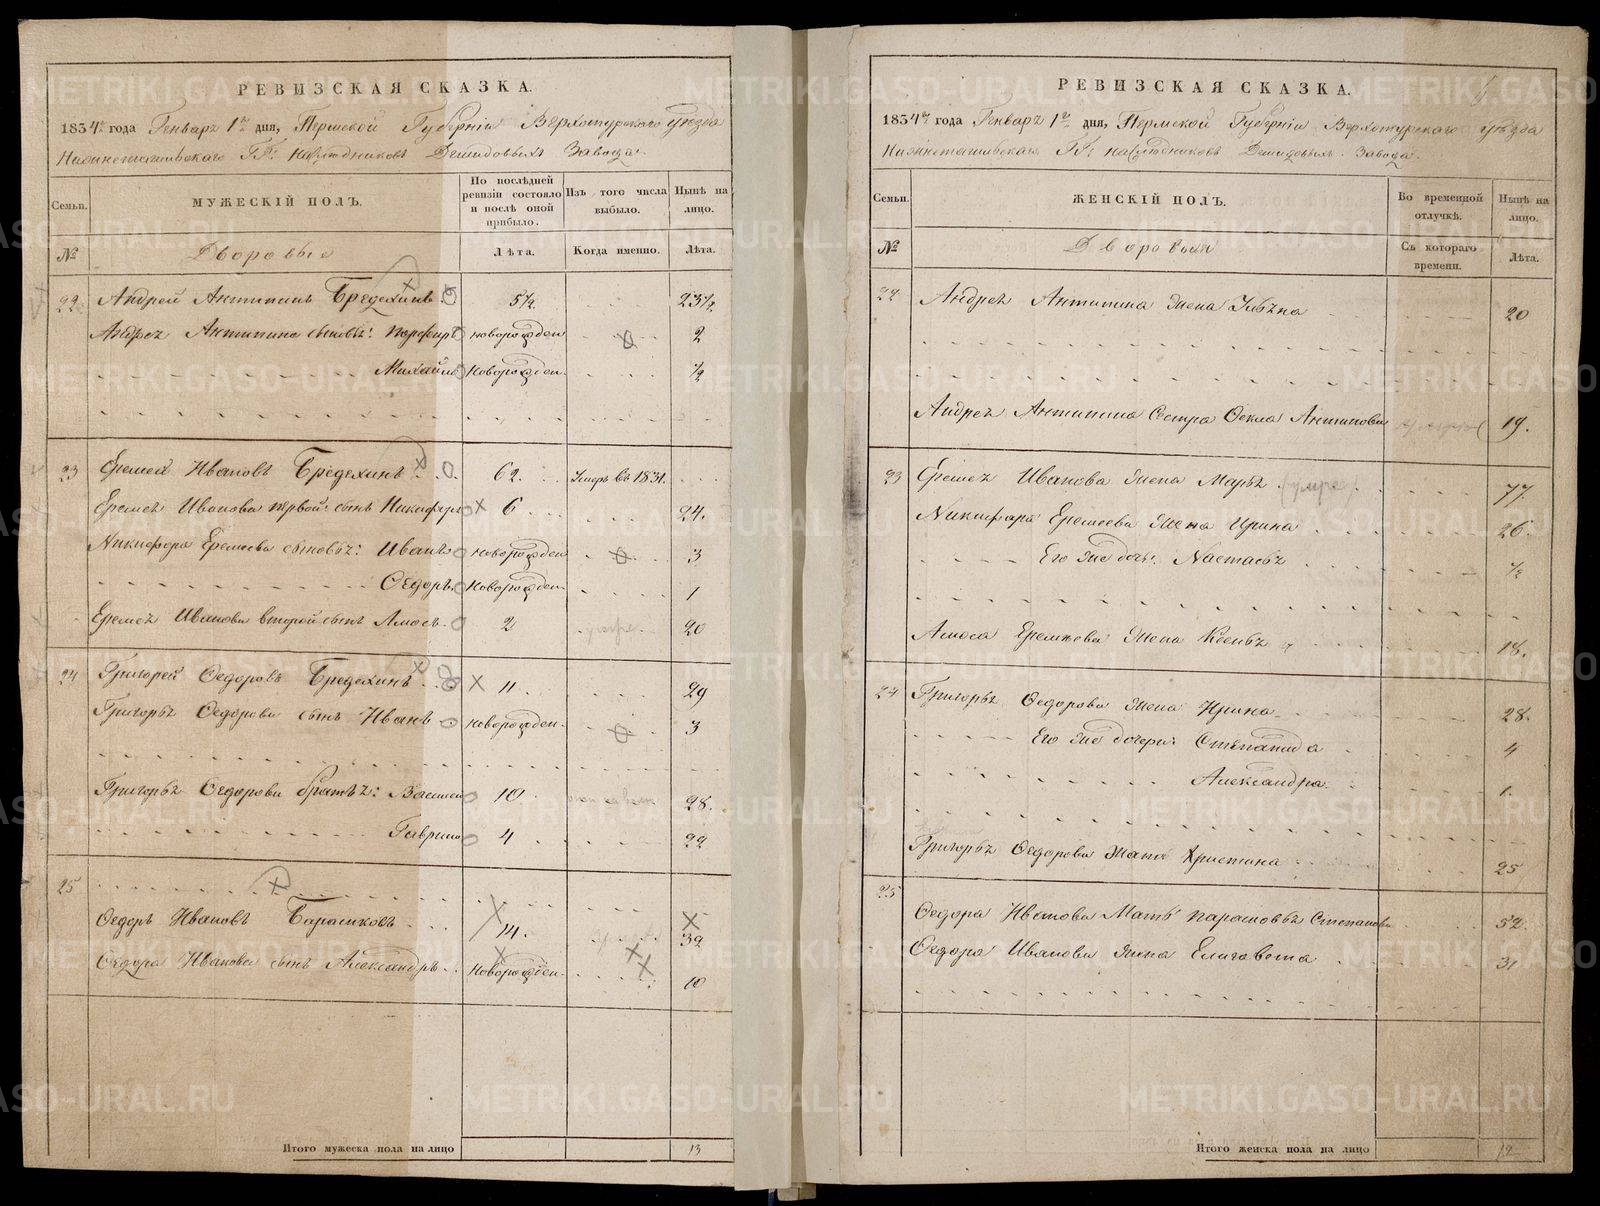 РЕВИЗСКАЯ СКАЗКА.
1834го года Генваря 1го дня, Пермской Губернiи Верхотурскаго уѣзда
Нижнетагильскаго ГГ: наслѣдниковъ Демидовыхъ Завода.
Семьи. МУЖЕСКIЙ ПОЛЪ. По послѣдней ревизiи состояло и послѣ оной прибыло. Изъ того числа выбыло. Нынѣ на лицо.
№ Дворовые Лѣта. Когда именно. Лѣта.
22 Андрей Антипинъ Бредехинъ 5½ 23½
Андрея Антипина сыновья: Порфирiй новорожден 2
Михайло новорожден. ½
23 Еремей Ивановъ Бредехинъ 62. Умеръ въ 1831.
Еремея Иванова первой сынъ Никифоръ 6 24.
Никифора Еремеева сыновья: Иванъ новорожден 3
Ѳедоръ новорожден 1
Еремея Иванова второй сынъ Амосъ 2 умре 20
24 Григорей Ѳедоровъ Бредехинъ 11. 29
Григорья Ѳедорова сынъ Иванъ новорожден. 3
Григорья Ѳедорова братья: Василей 10 28.
Гаврило 4 22
25
Ѳедоръ Ивановъ Барашковъ 14. 32
Ѳедора Иванова сынъ Александръ новорожден. 10
Итого мужеска пола на лицо 13
РЕВИЗСКАЯ СКАЗКА.
1834го года Генваря 1го дня, Пермской Губернiи Верхотурскаго уѣзда
Нижнетагильскаго ГГ: наслѣдниковъ Демидовыхъ Завода.
Семьи. ЖЕНСКIЙ ПОЛЪ. Во временной отлучкѣ. Нынѣ на лицо.
№ Дворовыя Съ котораго времени. Лѣта.
22 Андрея Антипина жена Ульяна 20
Андрея Антипина сестра Ѳекла Антипова 19.
23 Еремея Иванова жена Марья умре 77.
Никифора Еремеева жена Ирина 26.
Его же дочь: Настасья ½
Амоса Еремеева жена Ксенья 18.
24 Григорья Ѳедорова жена Ирина 28.
Его же дочери: Степанида 4
Александра 1.
Григорья Ѳедорова мать Христина 25
25 Ѳедора Иванова мать Парасковья Степанова 52.
Ѳедора Иванова жена Елизавета 31
Итого женска пола на лицо 12
METRIKI.GASO-URAL.RU